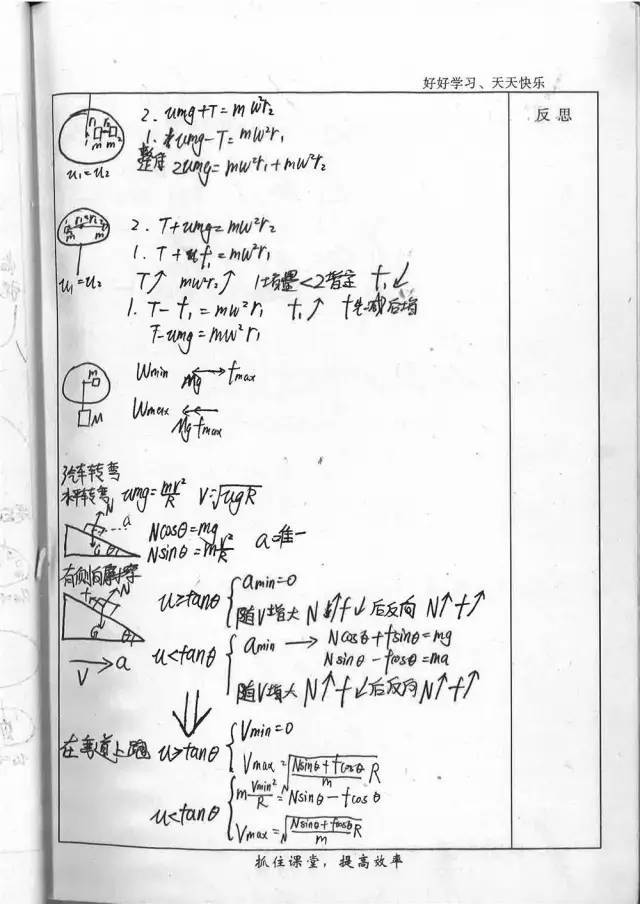 好好学习、天天快乐
反思
2. umg+T=mω²r₂
1. umg-T=mω²r₁
整体 2umg=mω²r₁+mω²r₂
u₁=u₂
2. T+umg=mω²r₂
1. T+f₁=mω²r₁
T↑ mω²r₂↑ 1增量<2指定 f₁↓
u₁=u₂
1. T-f₁=mω²r₁ f₁↑ f先减后增
T-umg=mω²r₁
m
M
Wmin Mg fmax
Wmax Mg fmax
汽车转弯
水平转弯 umg=mv²/R V=√ugR
N a G θ
Ncosθ=mg
Nsinθ=mv²/R a唯一
有侧向摩擦
f N G θ
V → a
u≥tanθ
amin=0
随V增大 N↑f↓后反向 N↑f↑
u<tanθ
amin → Ncosθ+fsinθ=mg
Nsinθ-fcosθ=ma
随V增大 N↑f↓后反向N↑f↑
在弯道上跑 u≥tanθ
Vmin=0
Vmax=√(Nsinθ+fcosθ)/m R
u<tanθ
m Vmin²/R=Nsinθ-fcosθ
Vmax=√(Nsinθ+fcosθ)/m R
抓住课堂，提高效率